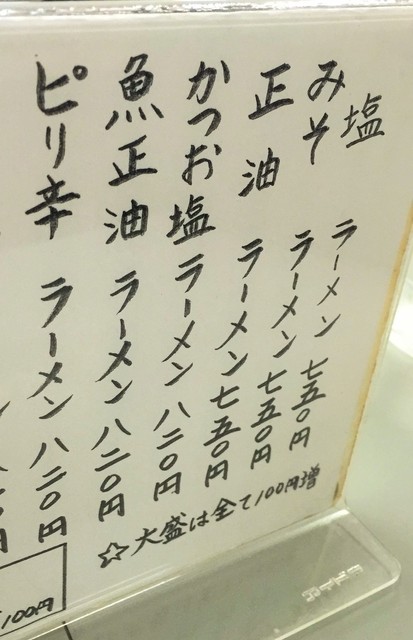 塩ラーメン 七五〇円
みそラーメン 七五〇円
正油ラーメン 七五〇円
かつお塩ラーメン 八二〇円
魚正油ラーメン 八二〇円
ピリ辛ラーメン 八二〇円
☆大盛は全て100円増
100円